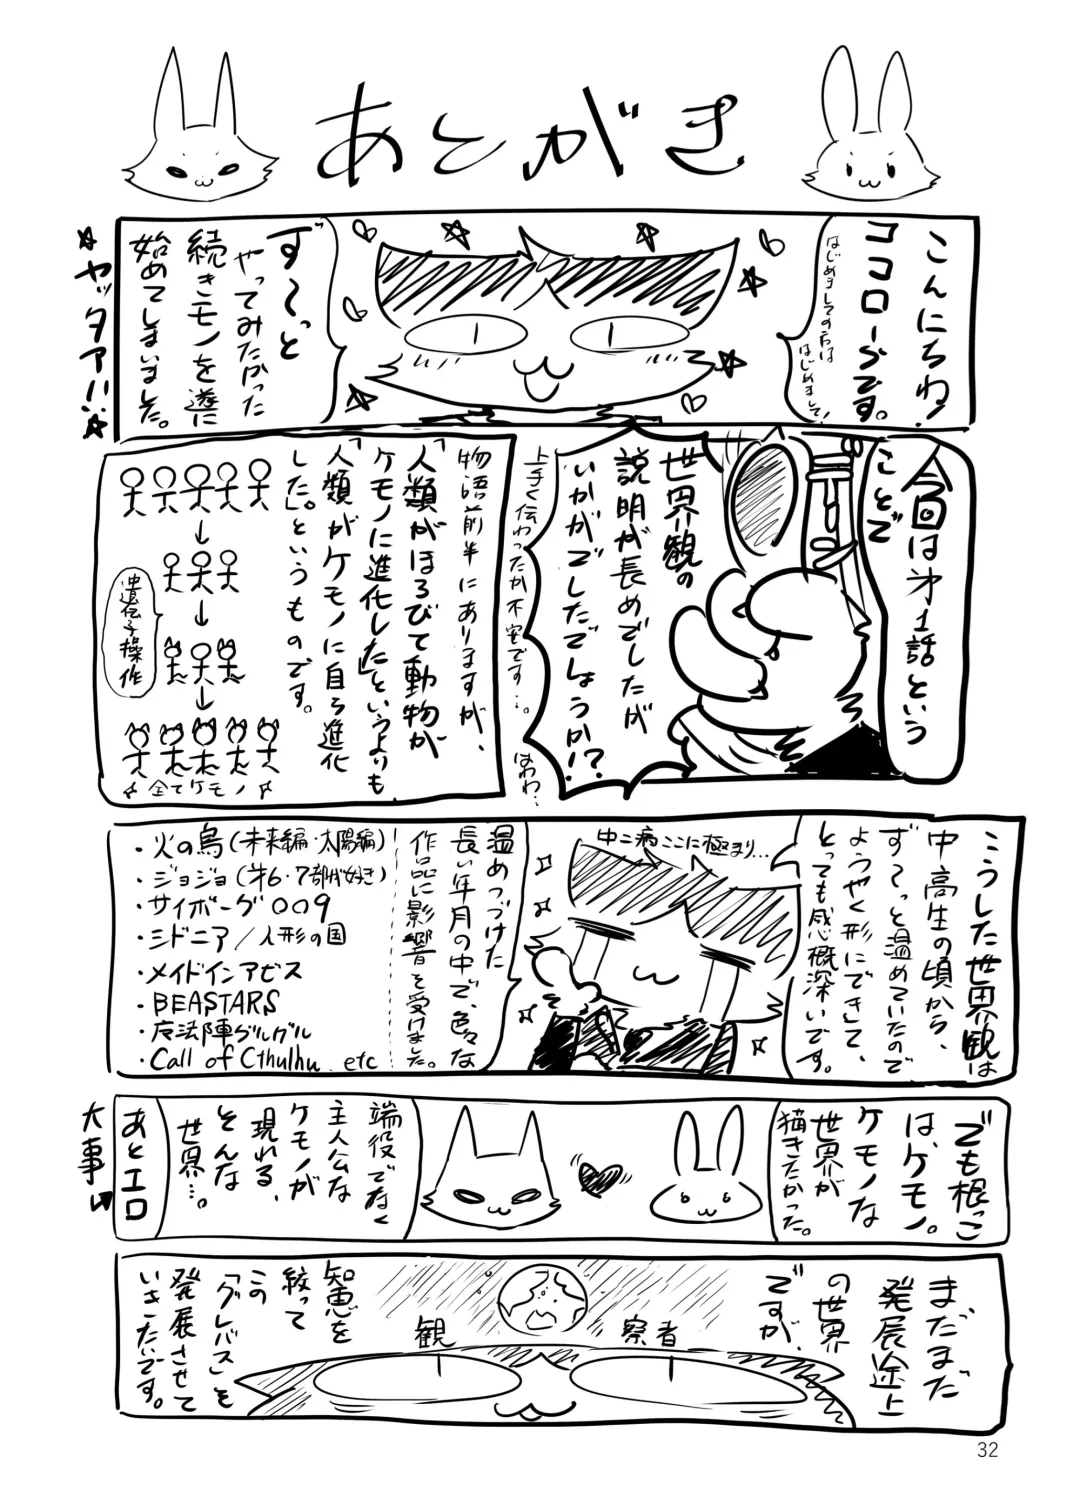 あとがき
こんにちわ!
ココローちです。
はじめましての方は
はじめまして!
ず〜っと
やってみたかった
続きモノを遂に
始めてしまいました。
☆ヤッタァ!!☆
今回は才1話という
ことで
世界観の
説明が長めでしたが
いかがでしたでしょうか!?
上手く伝わったか不安です…。
はわわ…
物語前半にありますが、
「人類がほろびて動物が
ケモノに進化した」というよりも
「人類がケモノに自ら進化
した」。というものです。
遺伝子操作
全てケモノ
こうした世界観は
中高生の頃から、
ず〜っと温めていたので
ようやく形にできて、
とっても感慨深いです。
中二病ここに極まり…
温めつづけた
長い年月の中で、色々な
作品に影響を受けました。
・火の鳥(未来編・太陽編)
・ジョジョ(才6・7部が好き)
・サイボーグ009
・シドニア/人形の国
・メイドインアビス
・BEASTARS
・魔法陣グルグル
・Call of Cthulhu etc
でも根っこ
は、ケモノ。
ケモノな
世界が
描きたかった。
端役でなく
主人公な
ケモノが
現れる、
そんな
世界…。
あとエロ
大事
まだまだ
発展途上
の世界
ですが、
観 察者
知恵を
絞って
この
「グレバス」を
発展させて
いきたいです。
32